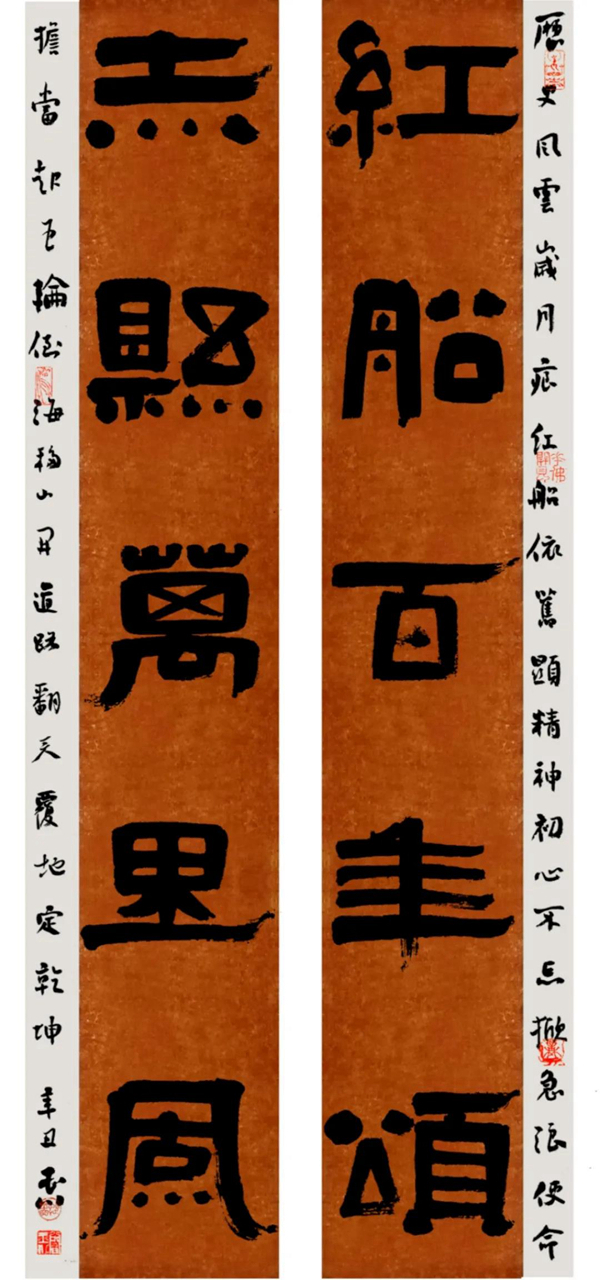 歷史风雲歲月痕红船依舊顯精神初心不忘掀急浪使命
紅船百年頌
赤縣萬里風
擔當起巨輪倒海移山开道路翻天覆地定乾坤 辛丑